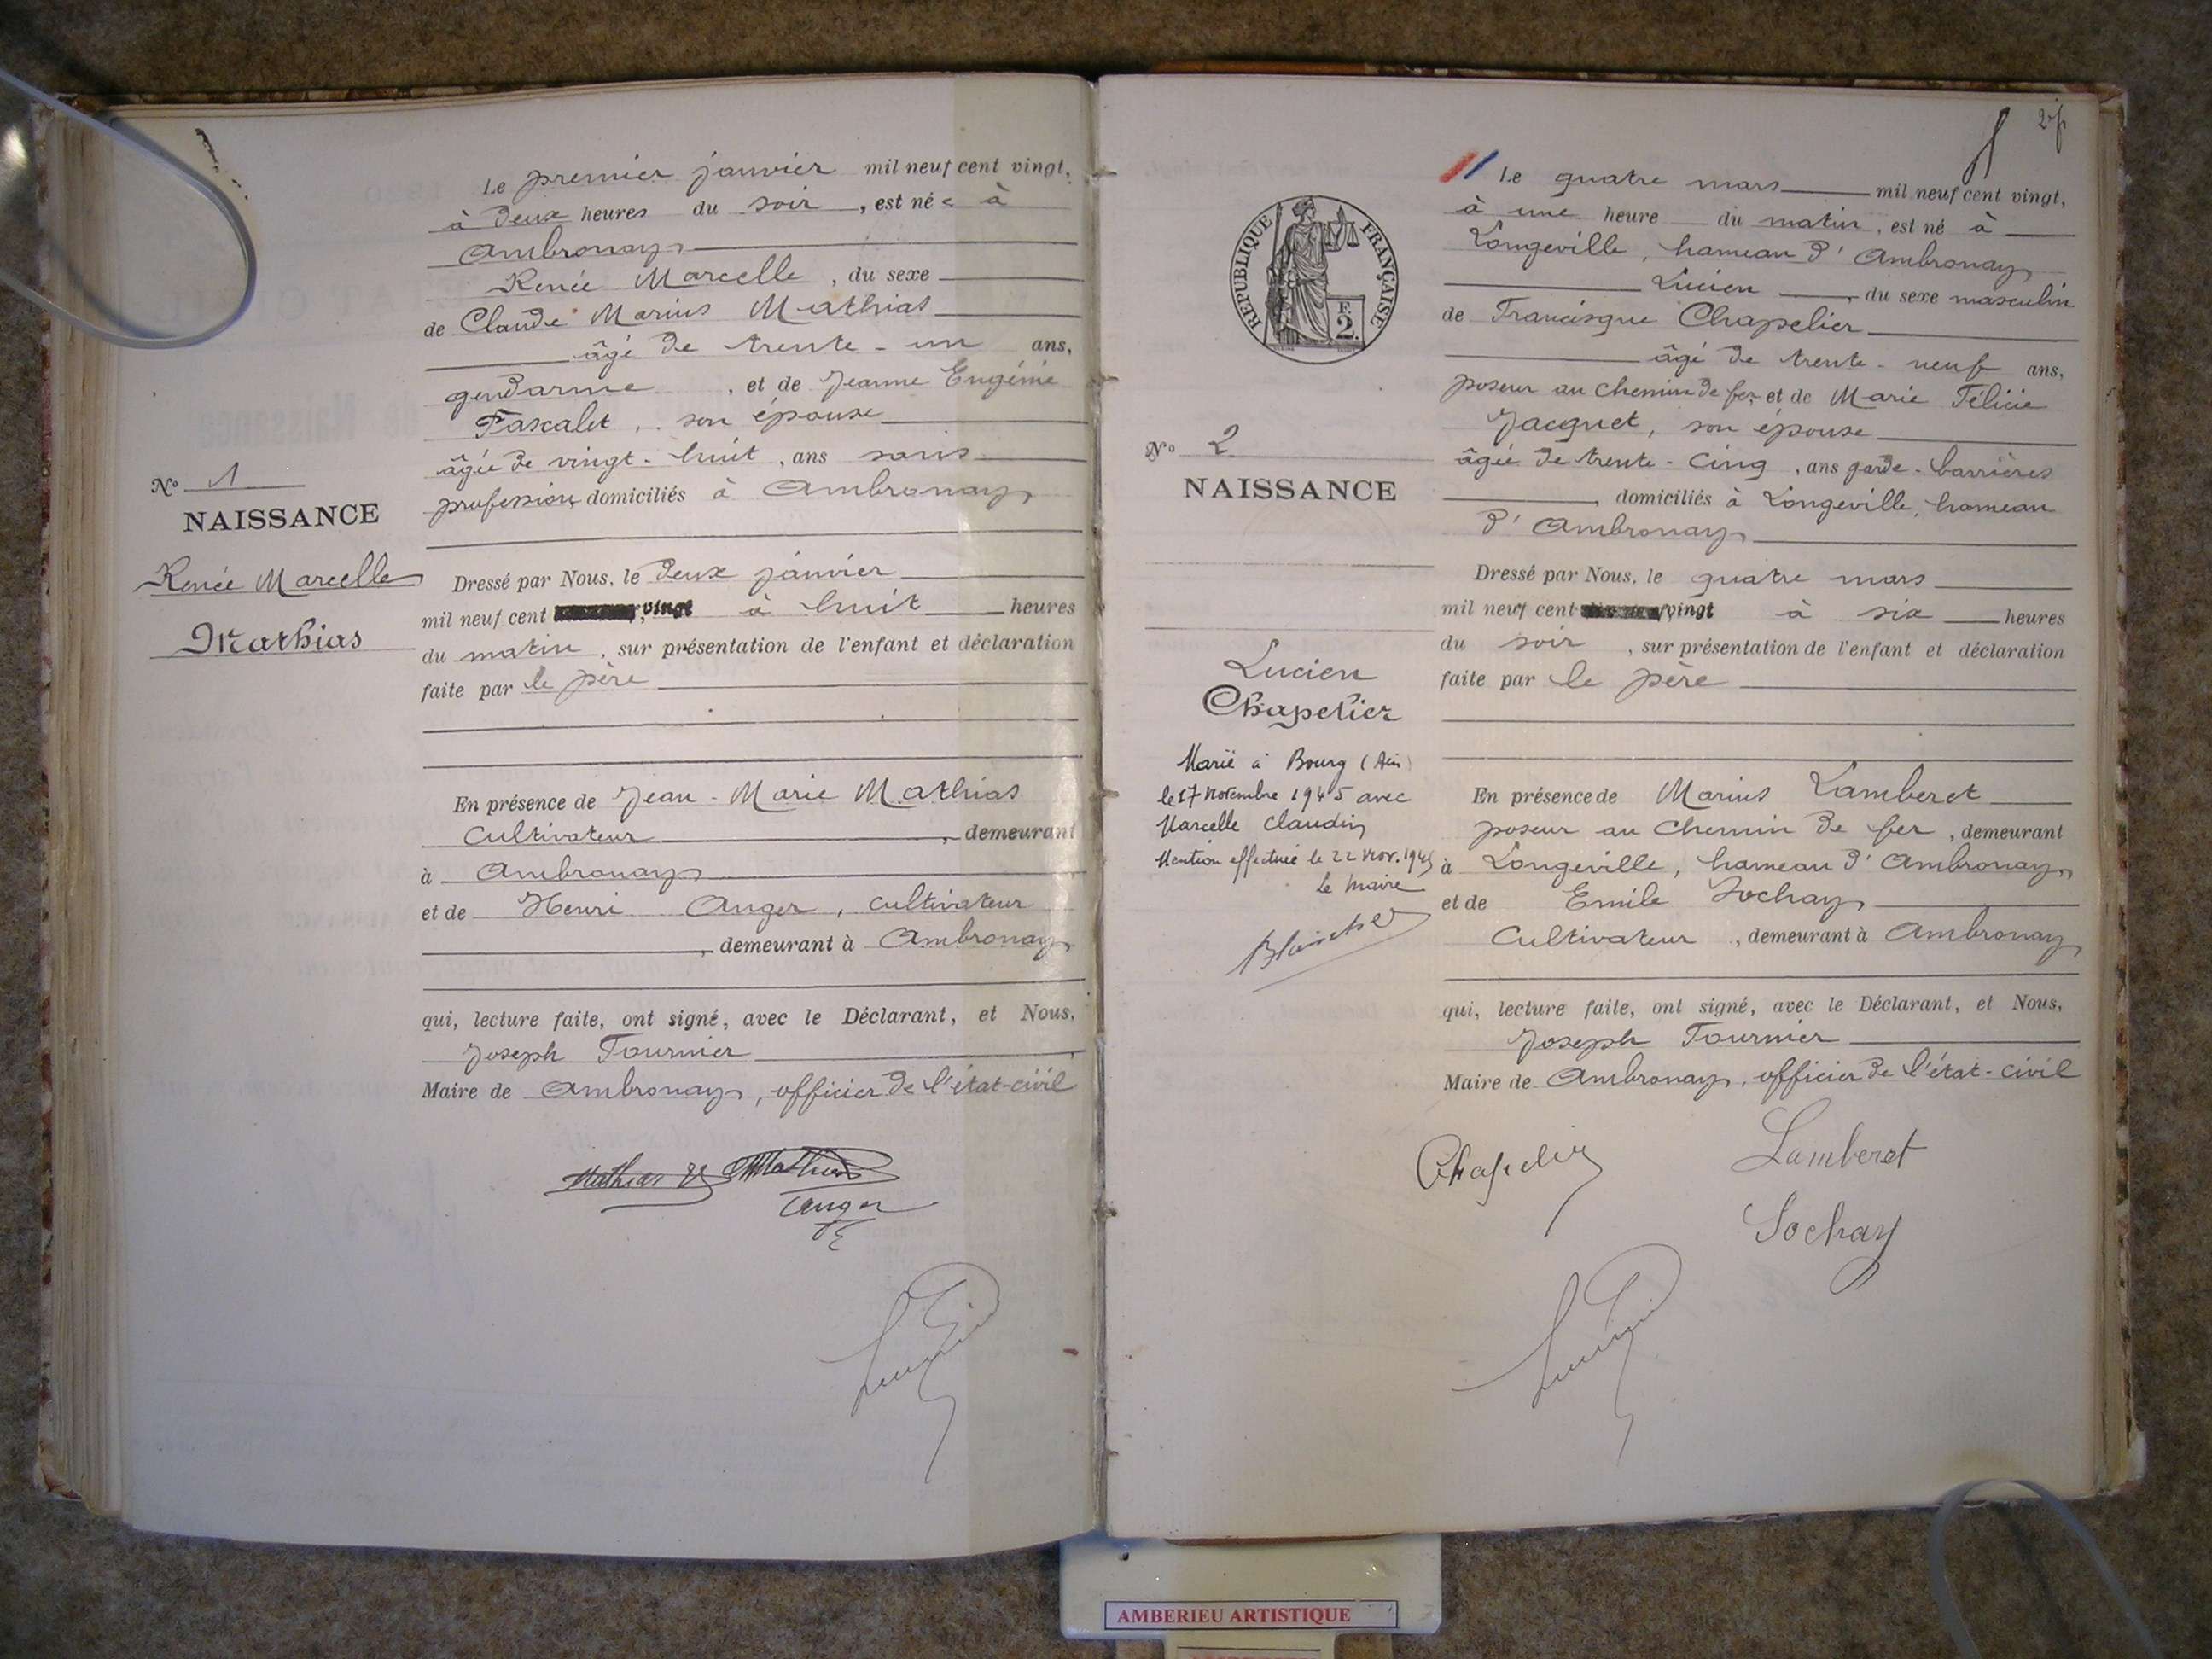 Le premier janvier mil neuf cent vingt,
à deux heures du soir, est née à
Ambronay
Renée Marcelle, du sexe
de Claude Marius Mathias
âgé de trente-un ans,
gendarme, et de Jeanne Eugénie
Pascalet, son épouse
âgée de vingt-huit, ans sans
profession, domiciliés à Ambronay
N° 1
NAISSANCE
Renée Marcelle
Mathias
Dressé par Nous, le deux janvier
mil neuf cent vingt à huit heures
du matin, sur présentation de l'enfant et déclaration
faite par le père
En présence de Jean-Marie Mathias
cultivateur, demeurant
à Ambronay
et de Henri Anger, cultivateur
, demeurant à Ambronay
qui, lecture faite, ont signé, avec le Déclarant, et Nous,
Joseph Fournier
Maire de Ambronay, officier de l'état-civil
Mathias
Mathias
Anger
2
Le quatre mars mil neuf cent vingt,
à une heure du matin, est né à
Longeville, hameau d'Ambronay
Lucien, du sexe masculin
de Francisque Chapelier
âgé de trente-neuf ans,
poseur au chemin de fer, et de Marie Félicie
Jacquet, son épouse
âgée de trente-cinq, ans garde-barrières
, domiciliés à Longeville, hameau
d'Ambronay
REPUBLIQUE FRANÇAISE
F.
2.
N° 2
NAISSANCE
Lucien
Chapelier
Marié à Bourg (Ain)
le 17 novembre 1945 avec
Marcelle Claudin
Mention effectuée le 22 Nov. 1945
Le Maire
Dressé par Nous, le quatre mars
mil neuf cent vingt à six heures
du soir, sur présentation de l'enfant et déclaration
faite par le père
En présence de Marius Lamberet
poseur au chemin de fer, demeurant
à Longeville, hameau d'Ambronay
et de Emile Sochay
cultivateur, demeurant à Ambronay
qui, lecture faite, ont signé, avec le Déclarant, et Nous,
Joseph Fournier
Maire de Ambronay, officier de l'état-civil
Chapelier
Lamberet
Sochay
AMBERIEU ARTISTIQUE